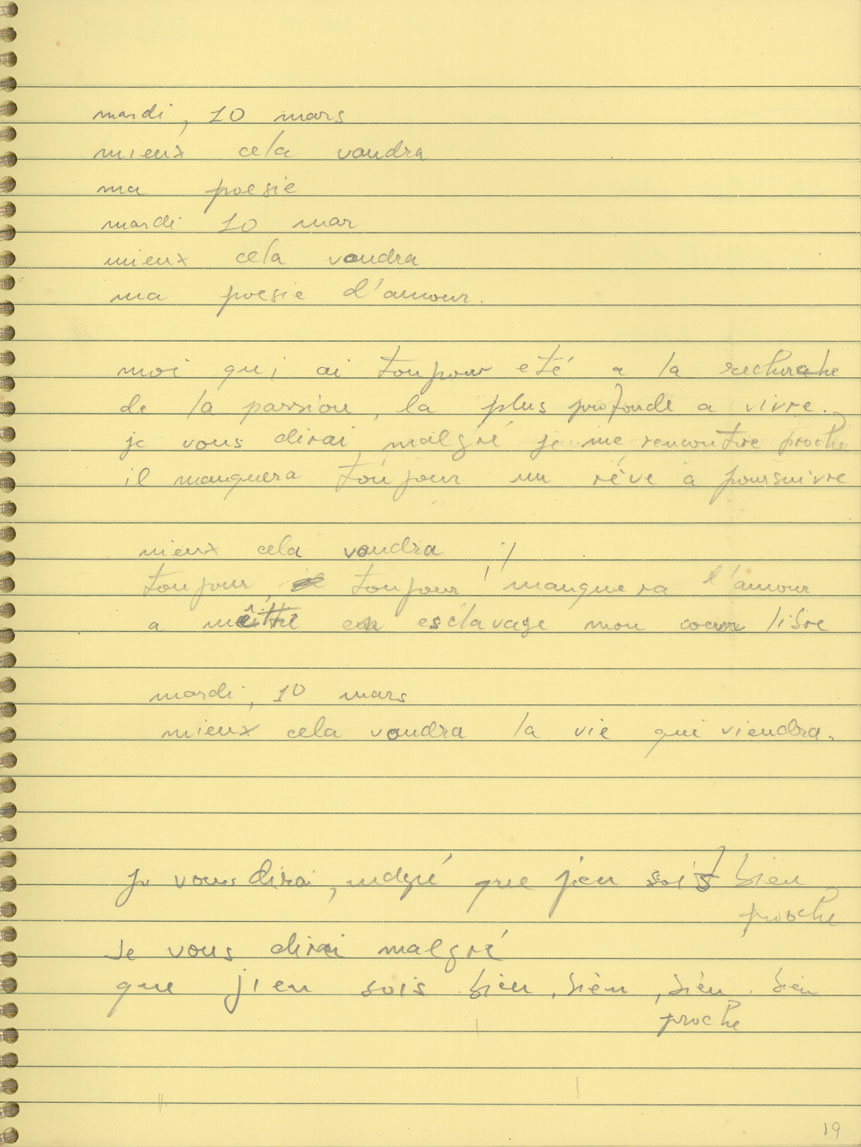 mardi, 10 mars
mieux cela vaudra
ma poesie
mardi 10 mar
mieux cela vaudra
ma poesie d'amour.
moi qui ai toujour eté a la recherche
de la passion, la plus profonde a vivre.
je vous dirai, malgré je me rencontre proche
il manquera toujour un rêve a poursuivre
mieux cela vaudra
toujour, toujour! manquera l'amour
a mettre en esclavage mon coeur libre
mardi, 10 mars
mieux cela vaudra la vie qui viendra.
Je vous dirai, malgré que j'en sois bien
proche
Je vous dirai malgré
que j'en sois bien, bien, bien, bien
proche
19